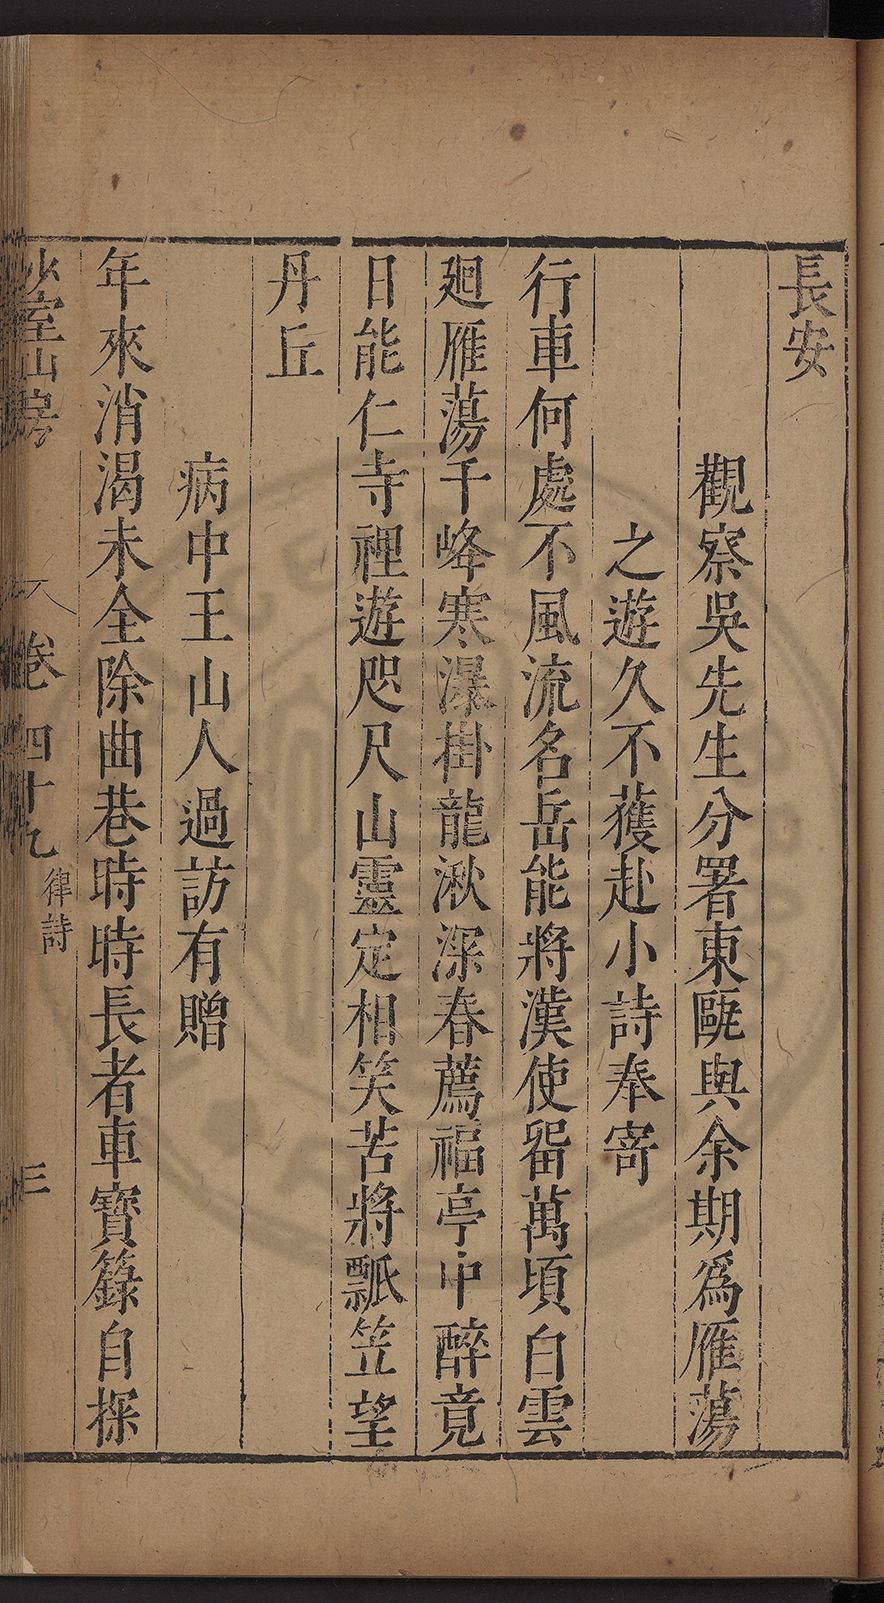 長安
觀察吳先生分署東甌與余期爲雁蕩
之遊久不獲赴小詩奉寄
行車何處不風流名岳能將漢使畱萬頃白雲
廻雁蕩千峰寒瀑掛龍湫深春薦福亭中醉竟
日能仁寺裡遊咫尺山靈定相笑苦將瓢笠望
丹丘
病中王山人過訪有贈
年來消渴未全除曲巷時時長者車寶籙自探
少室山房
卷四十九
律詩
三